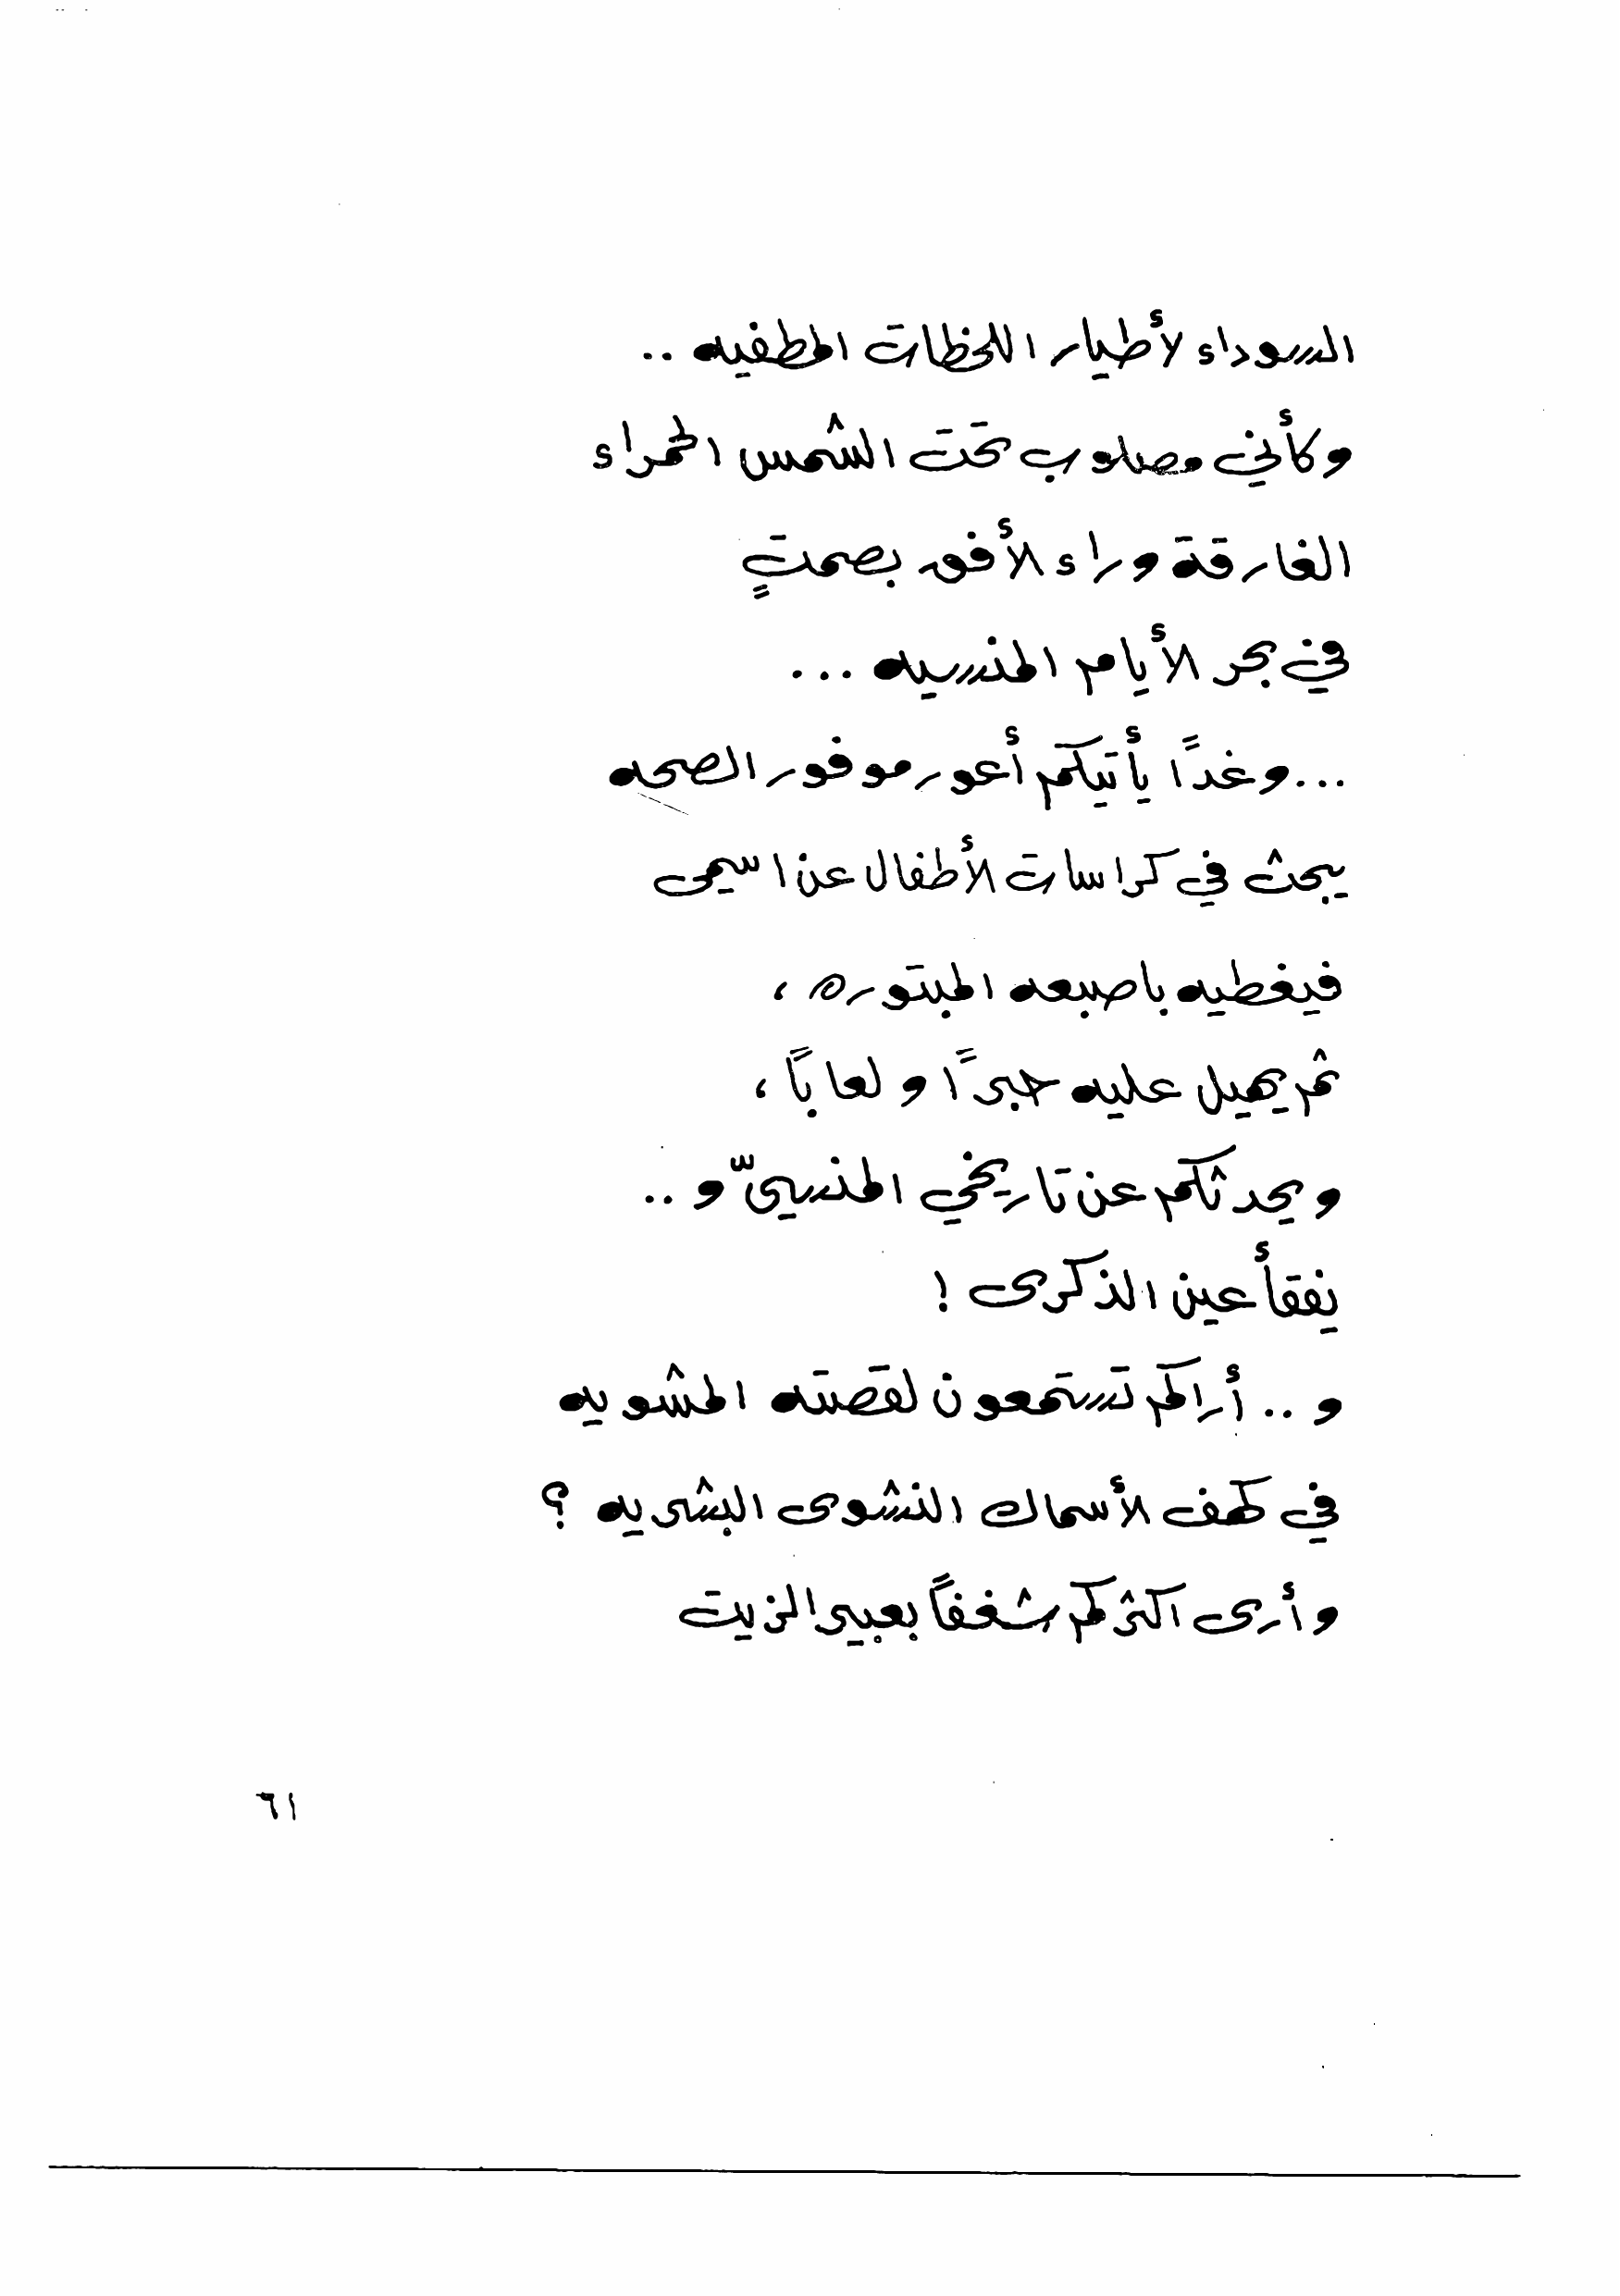 السوداء لأطيار اللحظات المطفيه ..
وكأني مصلوب تحت الشمس الحمراء
الغارقة وراء الأفق بصمتٍ
في بحر الأيام المنسيه ...
... وغداً يأتيكم أعور موفور الصحه
يبحث في كراسات الأطفال عن اسمى
فيغطيه باصبعه المبتوره ،
ثم يهيل عليه حبراً ولعاباً ،
ويحدثكم عن تاريخي المنسيّ و ..
يفقأ عين الذكرى !
و .. أراكم تستمعون لقصته المشويه
في كهف الأسماك النشوى البشريه ؟
وأرى اكثركم شغفاً بعبير الزيت
٦١